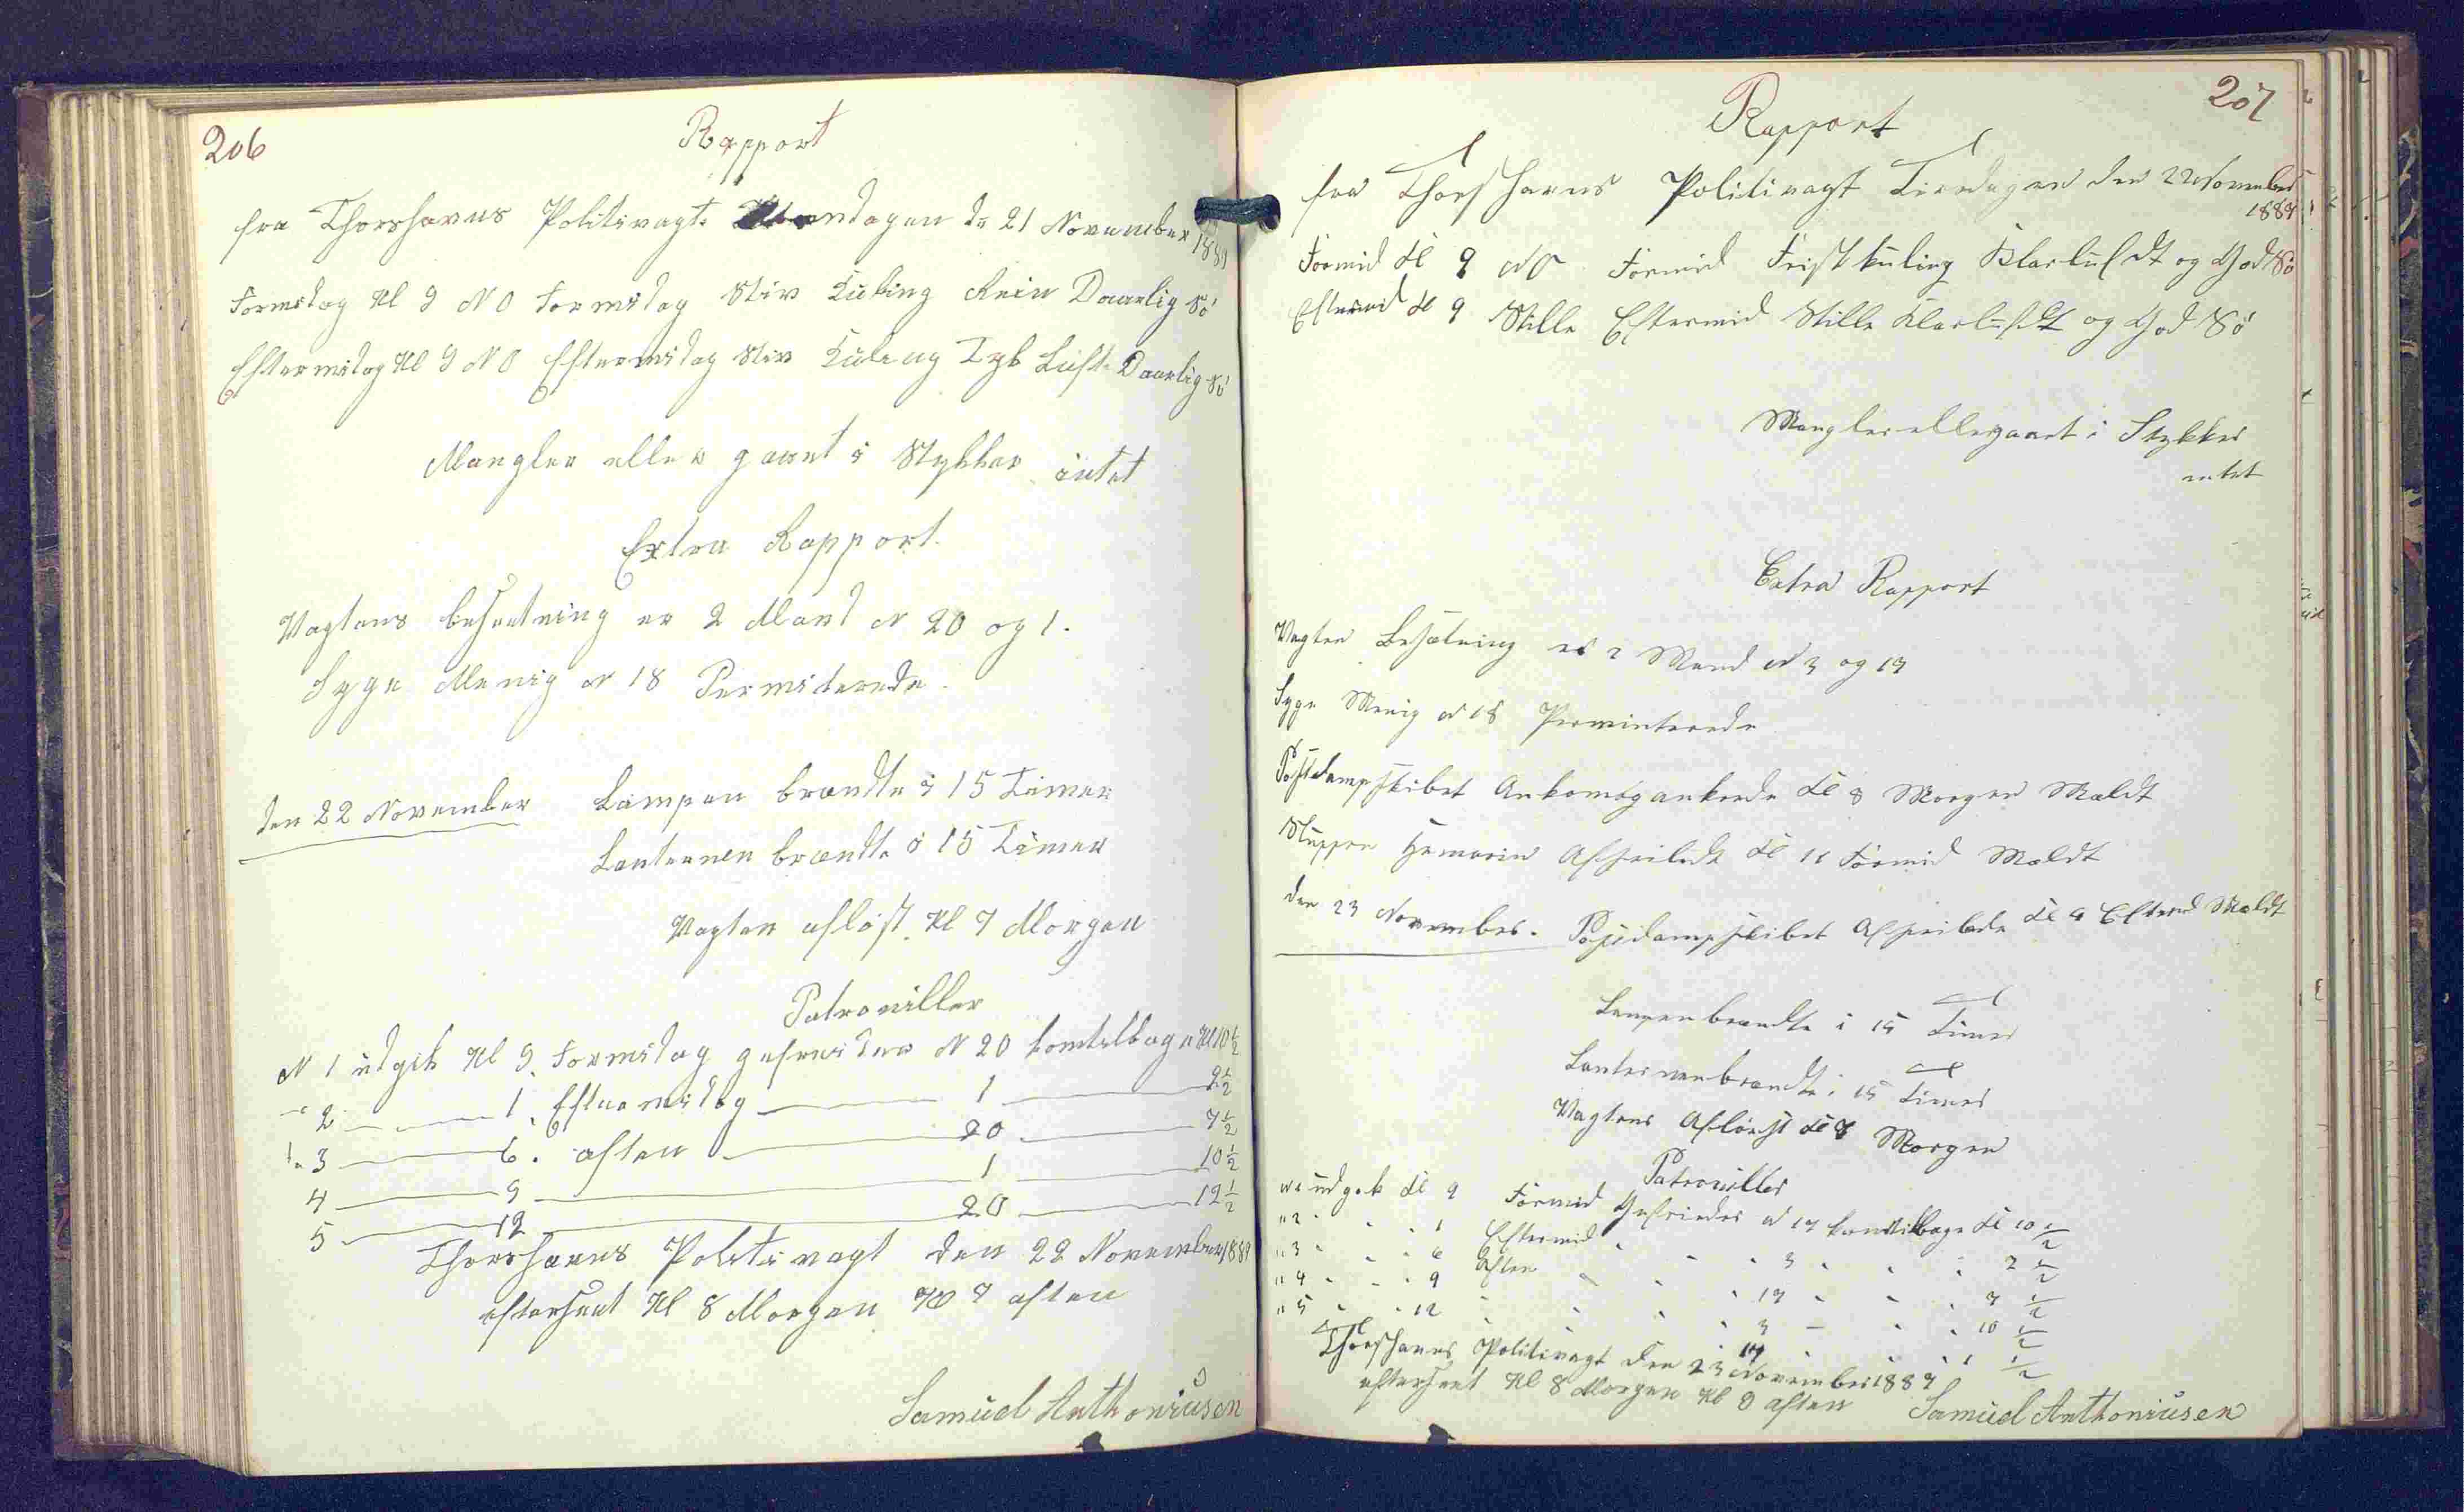 206
Rapport
fra Thorshavns Politivagt Mandagen d 21 November 1887
Formidag Kl 9 NO Formidag Stiv Kuling Rein Daarlig Sö
Eftermidag Kl 9 NO Eftermidag Stiv Kuling Tyk Luft Daarlig Sö
Mangler eller gaaet i Stykker intet
Extra Rapport.
Vagtens besætning er 2 Mand N 20 og 1.
Syge Menig N 18 Permiterede.
den 22 November Lampen brændte i 15 Timer
Lanternen brændte i 15 Timer
Vagten aflöst Kl 7 Morgen
Patrouiller
N 1 udgik Kl 9. Formidag gefreider N 20 komtilbage Kl 10 1/2
2 — 1. Eftermidag — 1 — 2 1/2
3 — 6. aften — 20 — 7 1/2
4 — 9 — 1 — 10 1/2
5 — 12 — 20 — 12 1/2
Thorshavns Politivagt den 22 November 1887
efterseet Kl 8 Morgen Kl 7 aften
Samuel Anthoniusen
207
Rapport
fra Thorshavns Politivagt Tirsdagen den 22 November
1887
Formid Kl 9 NO Formid Friskkuling Klarluft og God Sö
Eftermid Kl 9 Stille Eftermid Stille Klarluft og God Sö
Mangler ellergaaet i Stykker
intet
Extra Rapport
Vagten Besætning er 2 Mand N 3 og 17
Syge Menig N 18 Perminterede
Postdampskibet Ankomogankrede Kl 8 Morgen Meldt
Sluppen Afseiledt Kl 11 Formid Meldt
den 23 November. Postdampskibet Afseilede Kl 4 Eftermd Meldt
Lampenbrændte i 15 Timer
Lanternenbrændte i 15 Timer
Vagtens Aflöest Kl 8 Morgen
Patrouiller
N 1 udgik Kl 9 Formid Gefreider N 17 komtilbage Kl 10 1/2
" 2 " " 1 Eftermid " " 3 " " 2 1/2
" 3 " " 6 Aften " " 17 " " 7 1/2
" 4 " " 9 " " " 3 " " 10 1/2
" 5 " " 12 " " " 17 " " 1 1/2
Thorshavns Politivagt den 23 November 1887
efterseet Kl 8 Morgen Kl 9 aften
Samuel Anthoniusen